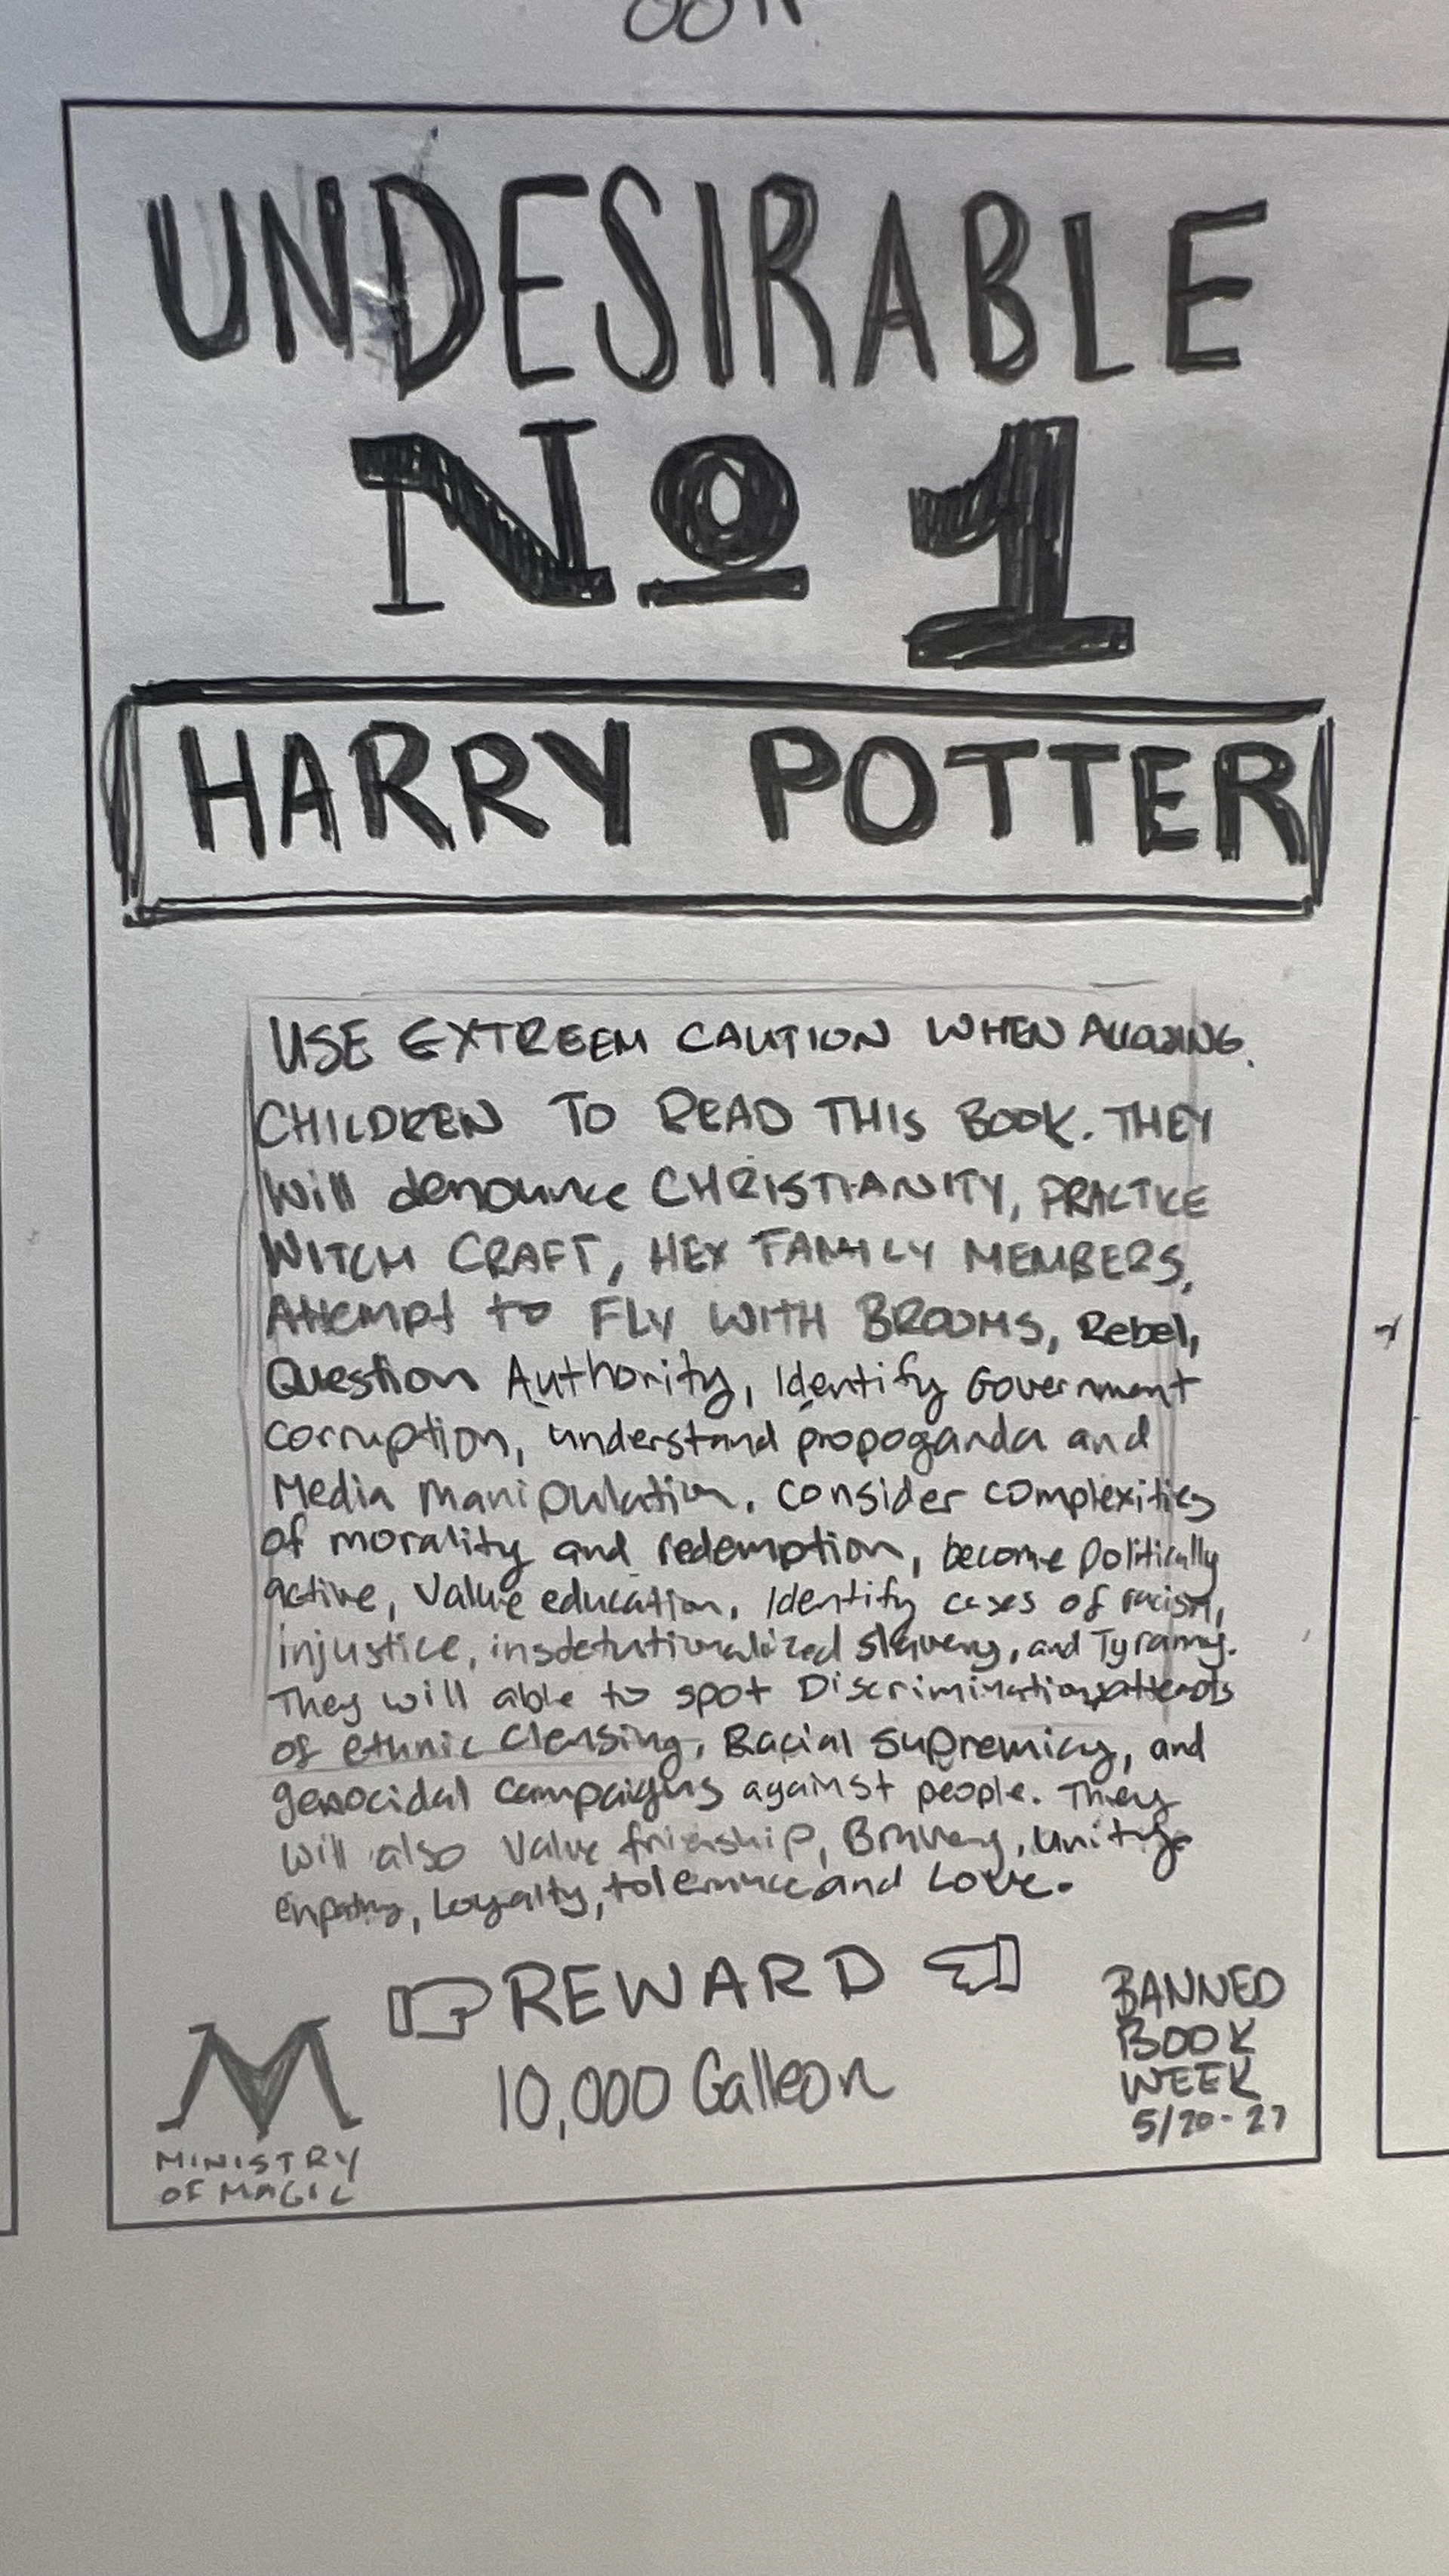 UNDESIRABLE
Nº 1
HARRY POTTER
USE EXTREEM CAUTION WHEN ALLOWING
CHILDREN TO READ THIS BOOK. THEY
will denounce CHRISTIANITY, PRACTICE
WITCH CRAFT, HEX FAMILY MEMBERS,
Attempt to FLY WITH BROOMS, Rebel,
Question Authority, Identify Government
corruption, understand propoganda and
Media Manipulation, consider complexities
of morality and redemption, become Politically
active, Value education, Identify cases of racism,
injustice, insdetutionalized slavery, and Tyranny.
They will able to spot Discrimination, attempts
of ethnic clensing, Racial Supremicy, and
genocidal campaigns against people. They
will also Value frienship, Bravery, unity,
enpathy, Loyalty, tolerance and Love.
REWARD
10,000 Galleon
MINISTRY
OF MAGIC
BANNED
BOOK
WEEK
5/20-27